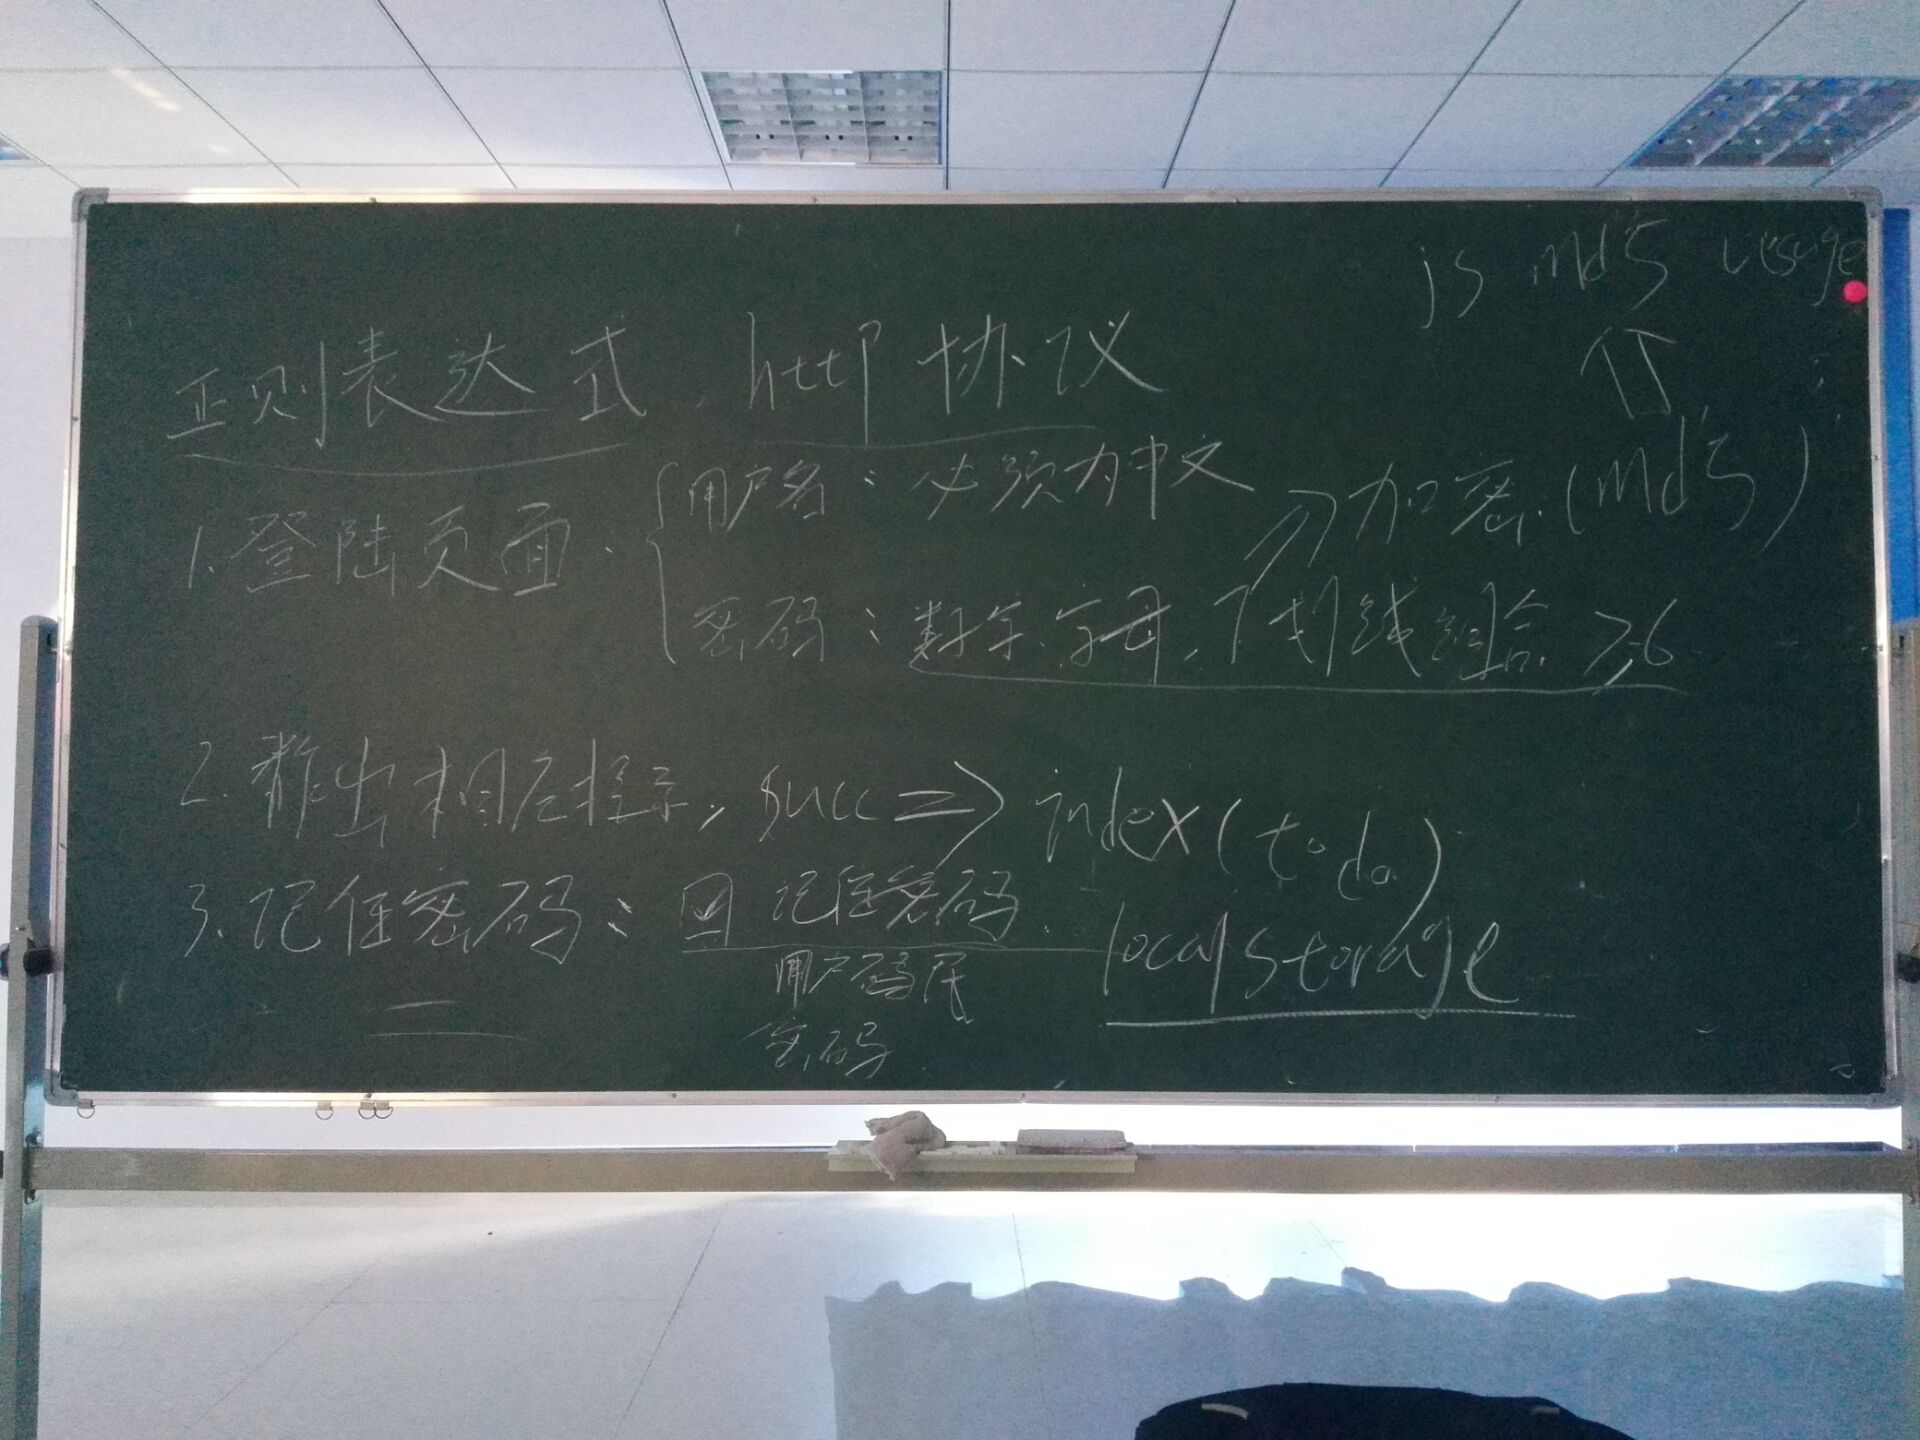 js md5 usage
正则表达式、http协议
1.登陆页面:
用户名:必须为中文
加密(md5)
密码:数字、字母、下划线组合 ≥6
2.出相应提示, succ => index(todo)
3.记住密码: 记住密码
localstorage
用户
密码